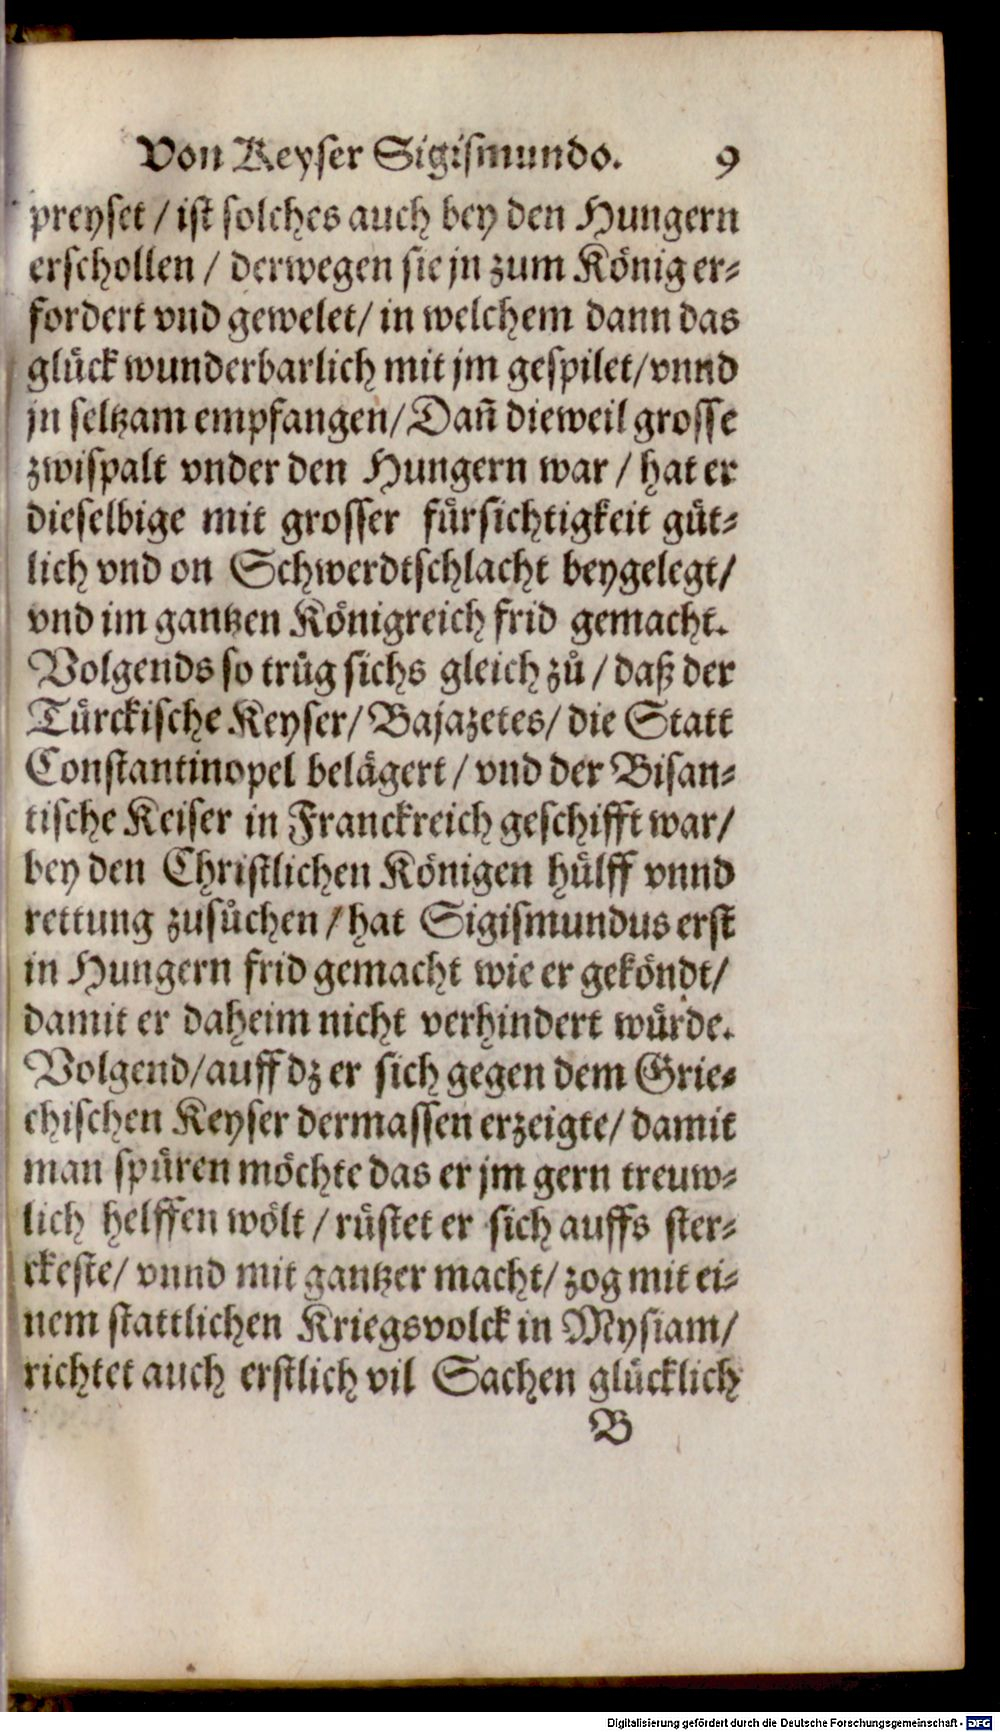 Von Keyser Sigismundo. 9
preyset / ist solches auch bey den Hungern
erschollen / derwegen sie jn zum König er-
fordert vnd gewelet / in welchem dann das
glück wunderbarlich mit jm gespilet / vnnd
jn seltzam empfangen / Dañ dieweil grosse
zwispalt vnder den Hungern war / hat er
dieselbige mit grosser fürsichtigkeit güt-
lich vnd on Schwerdtschlacht beygelegt /
vnd im gantzen Königreich frid gemacht.
Volgends so trüg sichs gleich zů / daß der
Türckische Keyser / Bajazetes / die Statt
Constantinopel belägert / vnd der Bisan-
tische Keiser in Franckreich geschifft war /
bey den Christlichen Königen hülff vnnd
rettung zusůchen / hat Sigismundus erst
in Hungern frid gemacht wie er geköndt /
damit er daheim nicht verhindert würde.
Volgend / auff dz er sich gegen dem Grie-
chischen Keyser dermassen erzeigte / damit
man spüren möchte das er jm gern treuw-
lich helffen wölt / rüstet er sich auffs ster-
ckeste / vnnd mit gantzer macht / zog mit ei-
nem stattlichen Kriegsvolck in Mysiam /
richtet auch erstlich vil Sachen glücklich
B
Digitalisierung gefördert durch die Deutsche Forschungsgemeinschaft - DFG